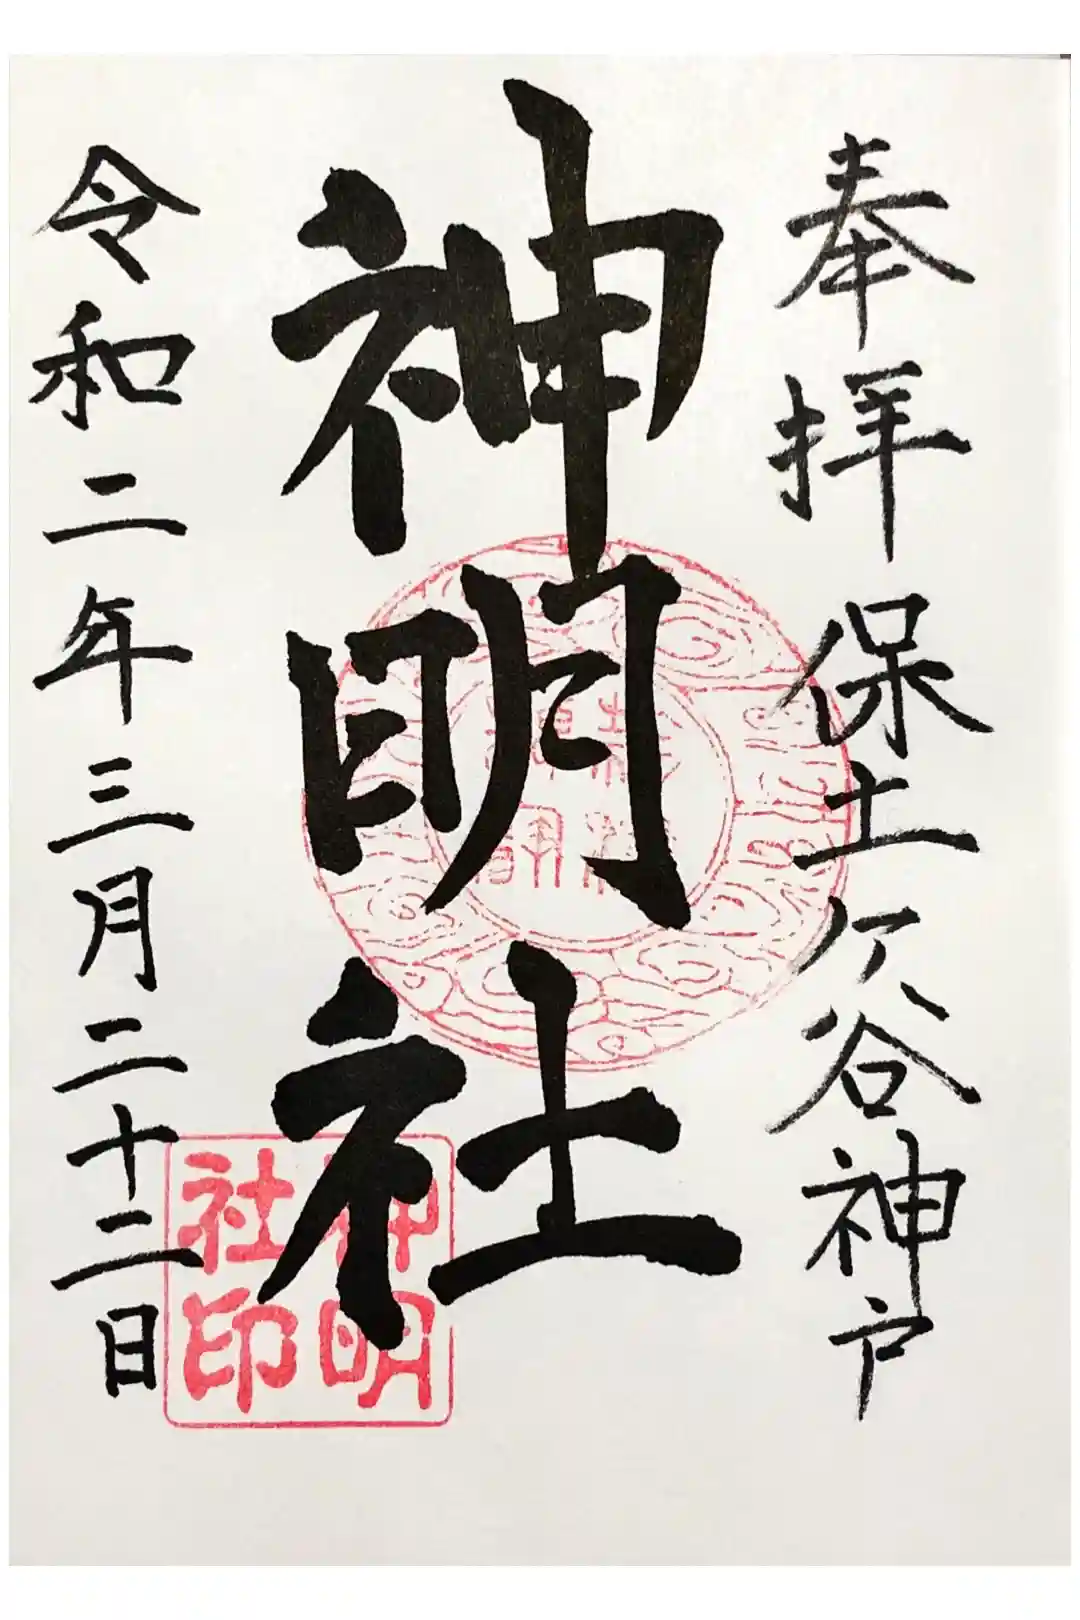 奉拝 保土ヶ谷神戸
神明社
令和二年三月二十二日
神明
社印